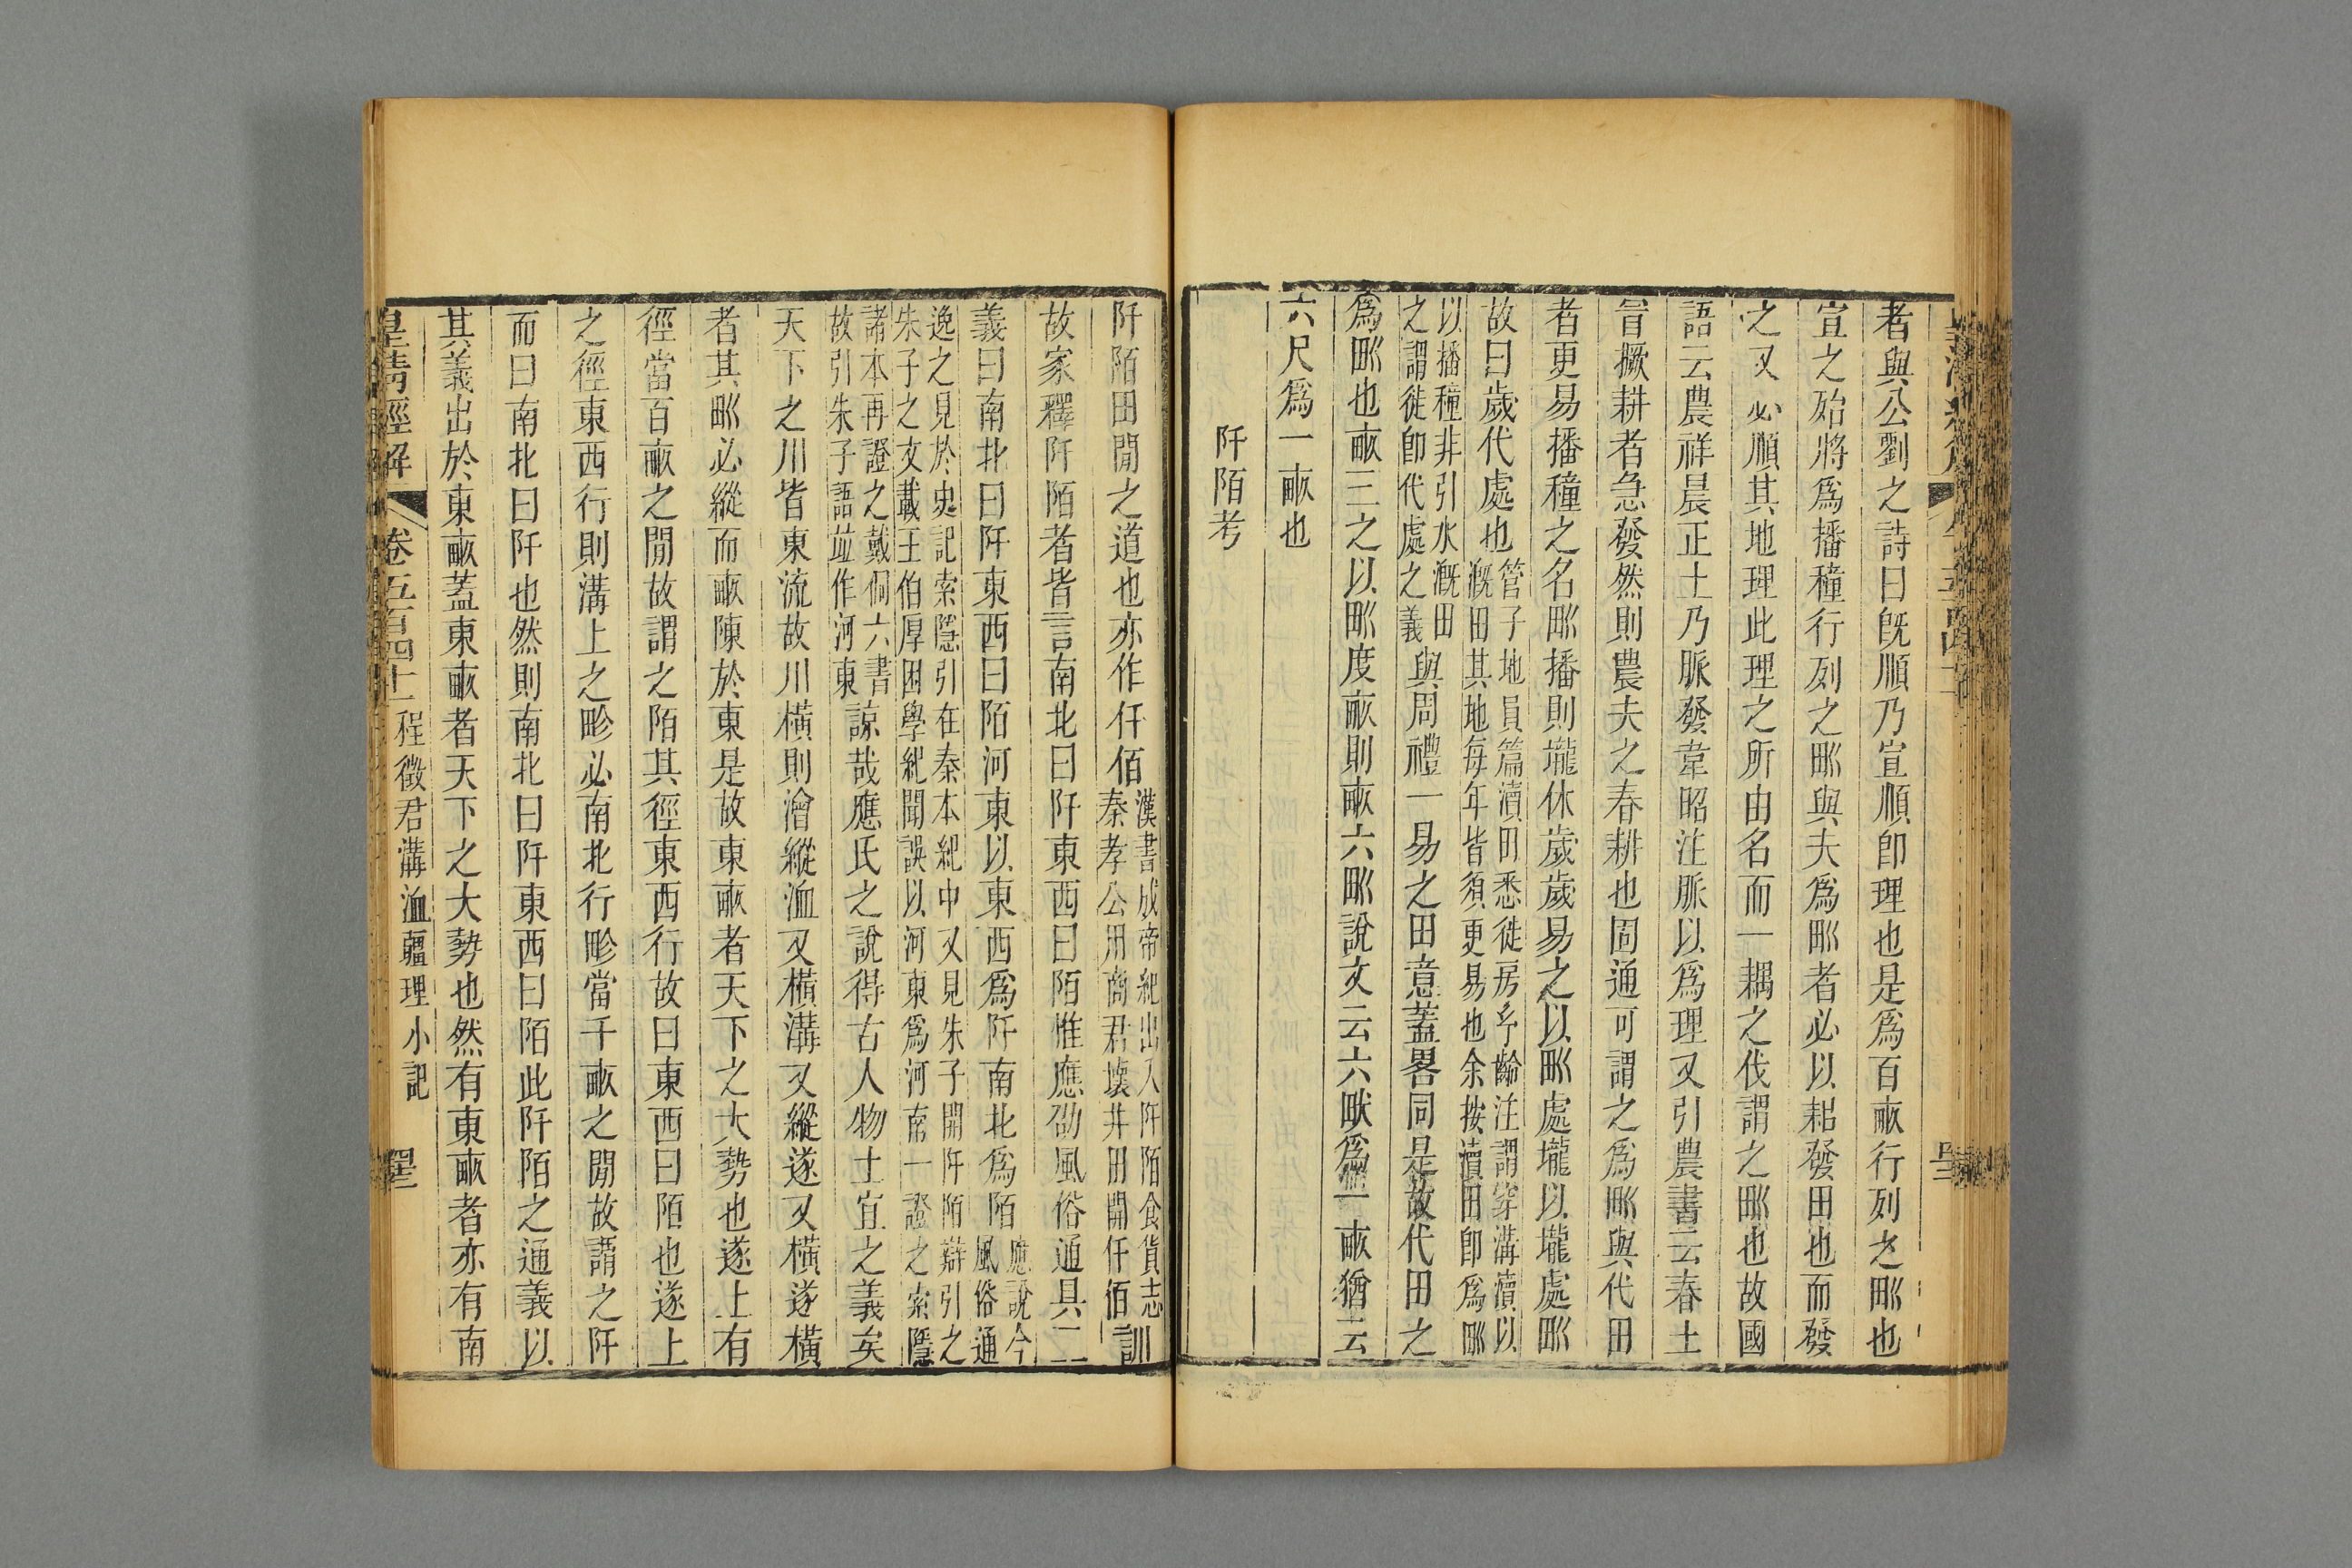 者與公劉之詩曰旣順乃宣順卽理也是爲百畞行列之甽也
宣之殆將爲播種行列之甽與夫爲甽者必以耜發田也而發
之又必順其地理此理之所由名而一耦之伐謂之甽也故國
語云農祥晨正土乃脈發韋昭注脈以爲理又引農書云春土
冒撅耕者急發然則農夫之春耕也固通可謂之爲甽與代田
者更易播種之名甽播則壠休歲歲易之以甽處壠以壠處甽
故曰歲代處也管子地員篇瀆田悉徙房予齡注謂穿溝瀆以
漑田其地每年皆須更易也余按瀆田卽爲甽
以播種非引水漑田
之謂徙卽代處之義與周禮一易之田意蓋畧同是故代田之
爲甽也畞三之以甽度畞則畞六甽說文云六畎爲一畞猶云
六尺爲一畞也
阡陌考
阡陌田閒之道也亦作仟佰漢書成帝紀出入阡陌食貨志
秦孝公用商君壞井田開仟佰訓
故家釋阡陌者皆言南北曰阡東西曰陌惟應劭風俗通具二
義曰南北曰阡東西曰陌河東以東西爲阡南北爲陌應說今
風俗通
逸之見於史記索隱引在秦本紀中又見朱子開阡陌辯引之
朱子之文載王伯厚困學紀聞誤以河東爲河南一證之索隱
諸本再證之戴侗六書
故引朱子語並作河東諒哉應氏之說得古人物土宜之義矣
天下之川皆東流故川橫則澮縱洫又橫溝又縱遂又橫遂橫
者其甽必縱而畞陳於東是故東畞者天下之大勢也遂上有
徑當百畞之閒故謂之陌其徑東西行故曰東西曰陌也遂上
之徑東西行則溝上之畛必南北行畛當千畞之閒故謂之阡
而曰南北曰阡也然則南北曰阡東西曰陌此阡陌之通義以
其義出於東畞蓋東畞者天下之大勢也然有東畞者亦有南
皇淸經解 卷五百四十一 程徵君溝洫疆理小記